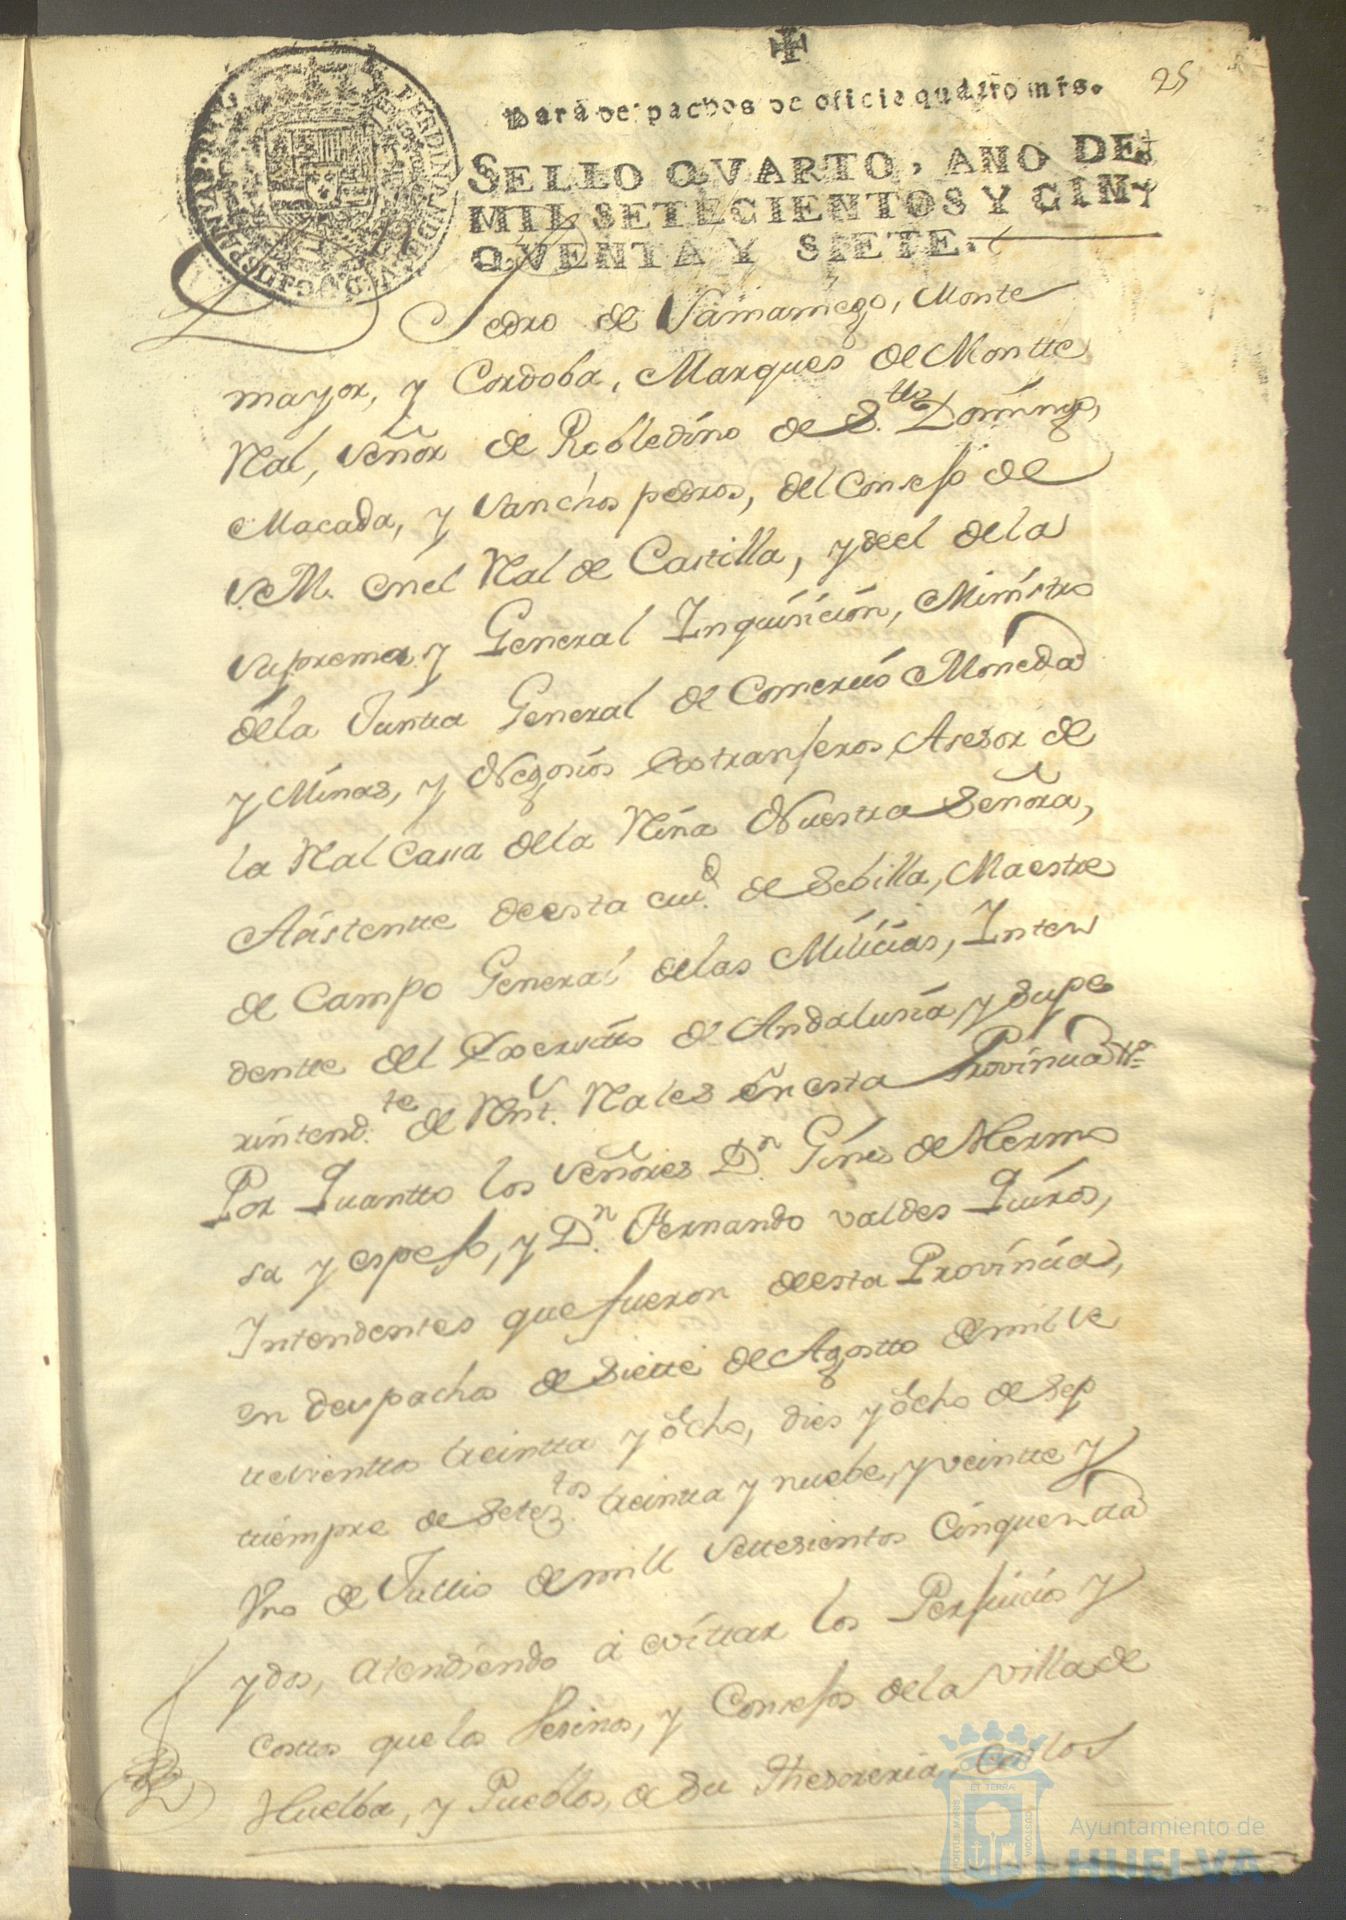 25
Para despachos de oficio quatro mrs.
SELLO QVARTO, AÑO DE
MIL SETECIENTOS Y CINY
QVENTA Y SIETE.
Pedro de Samaniego, Monte
mayor, y Cordoba, Marques de Montte
Ral, Señor de Robledino de S.tto Domingo,
Macada, y Sanchos pedros, del Consejo de
S.M. en el Ral de Castilla, y de el de la
Suprema y General Inquisicion, Ministro
de la Juntta General de Comercio Moneda
y Minas, y Negosios Extranjeros, Asesor de
la Ral Cassa de la Reina Nuestra Señora,
Asistentte de esta ciu.d de Sebilla, Maestre
de Campo General de las Milicias, Inten
dentte del Exercitto de Andalusia, y Supe
rintend.te de Rent.s Rales en esta Provincia
Por Quantto los Señores D.n Gines de Hermo
sa y espejo, y D.n Fernando valdes Quiros,
Intendentes que fueron de esta Provincia,
en despachos de Siette de Agostto de mil se
ttesienttos treintta y ôcho, dies y ôcho de Sep
ttiempre de Setez.tos treintta y nuebe, y veintte y
Vno de Jullio de mill Settesientos Cinquentta
y dos, atendiendo à evittar los Perjuicios y
costtos que los Vesinos, y Consejos de la Villa de
Huelba, y Pueblos, de su Thesoreria, Carlos
Ayuntamiento de
HUELVA
ET TERRÆ
PORTUS MARIS
CUSTODIA